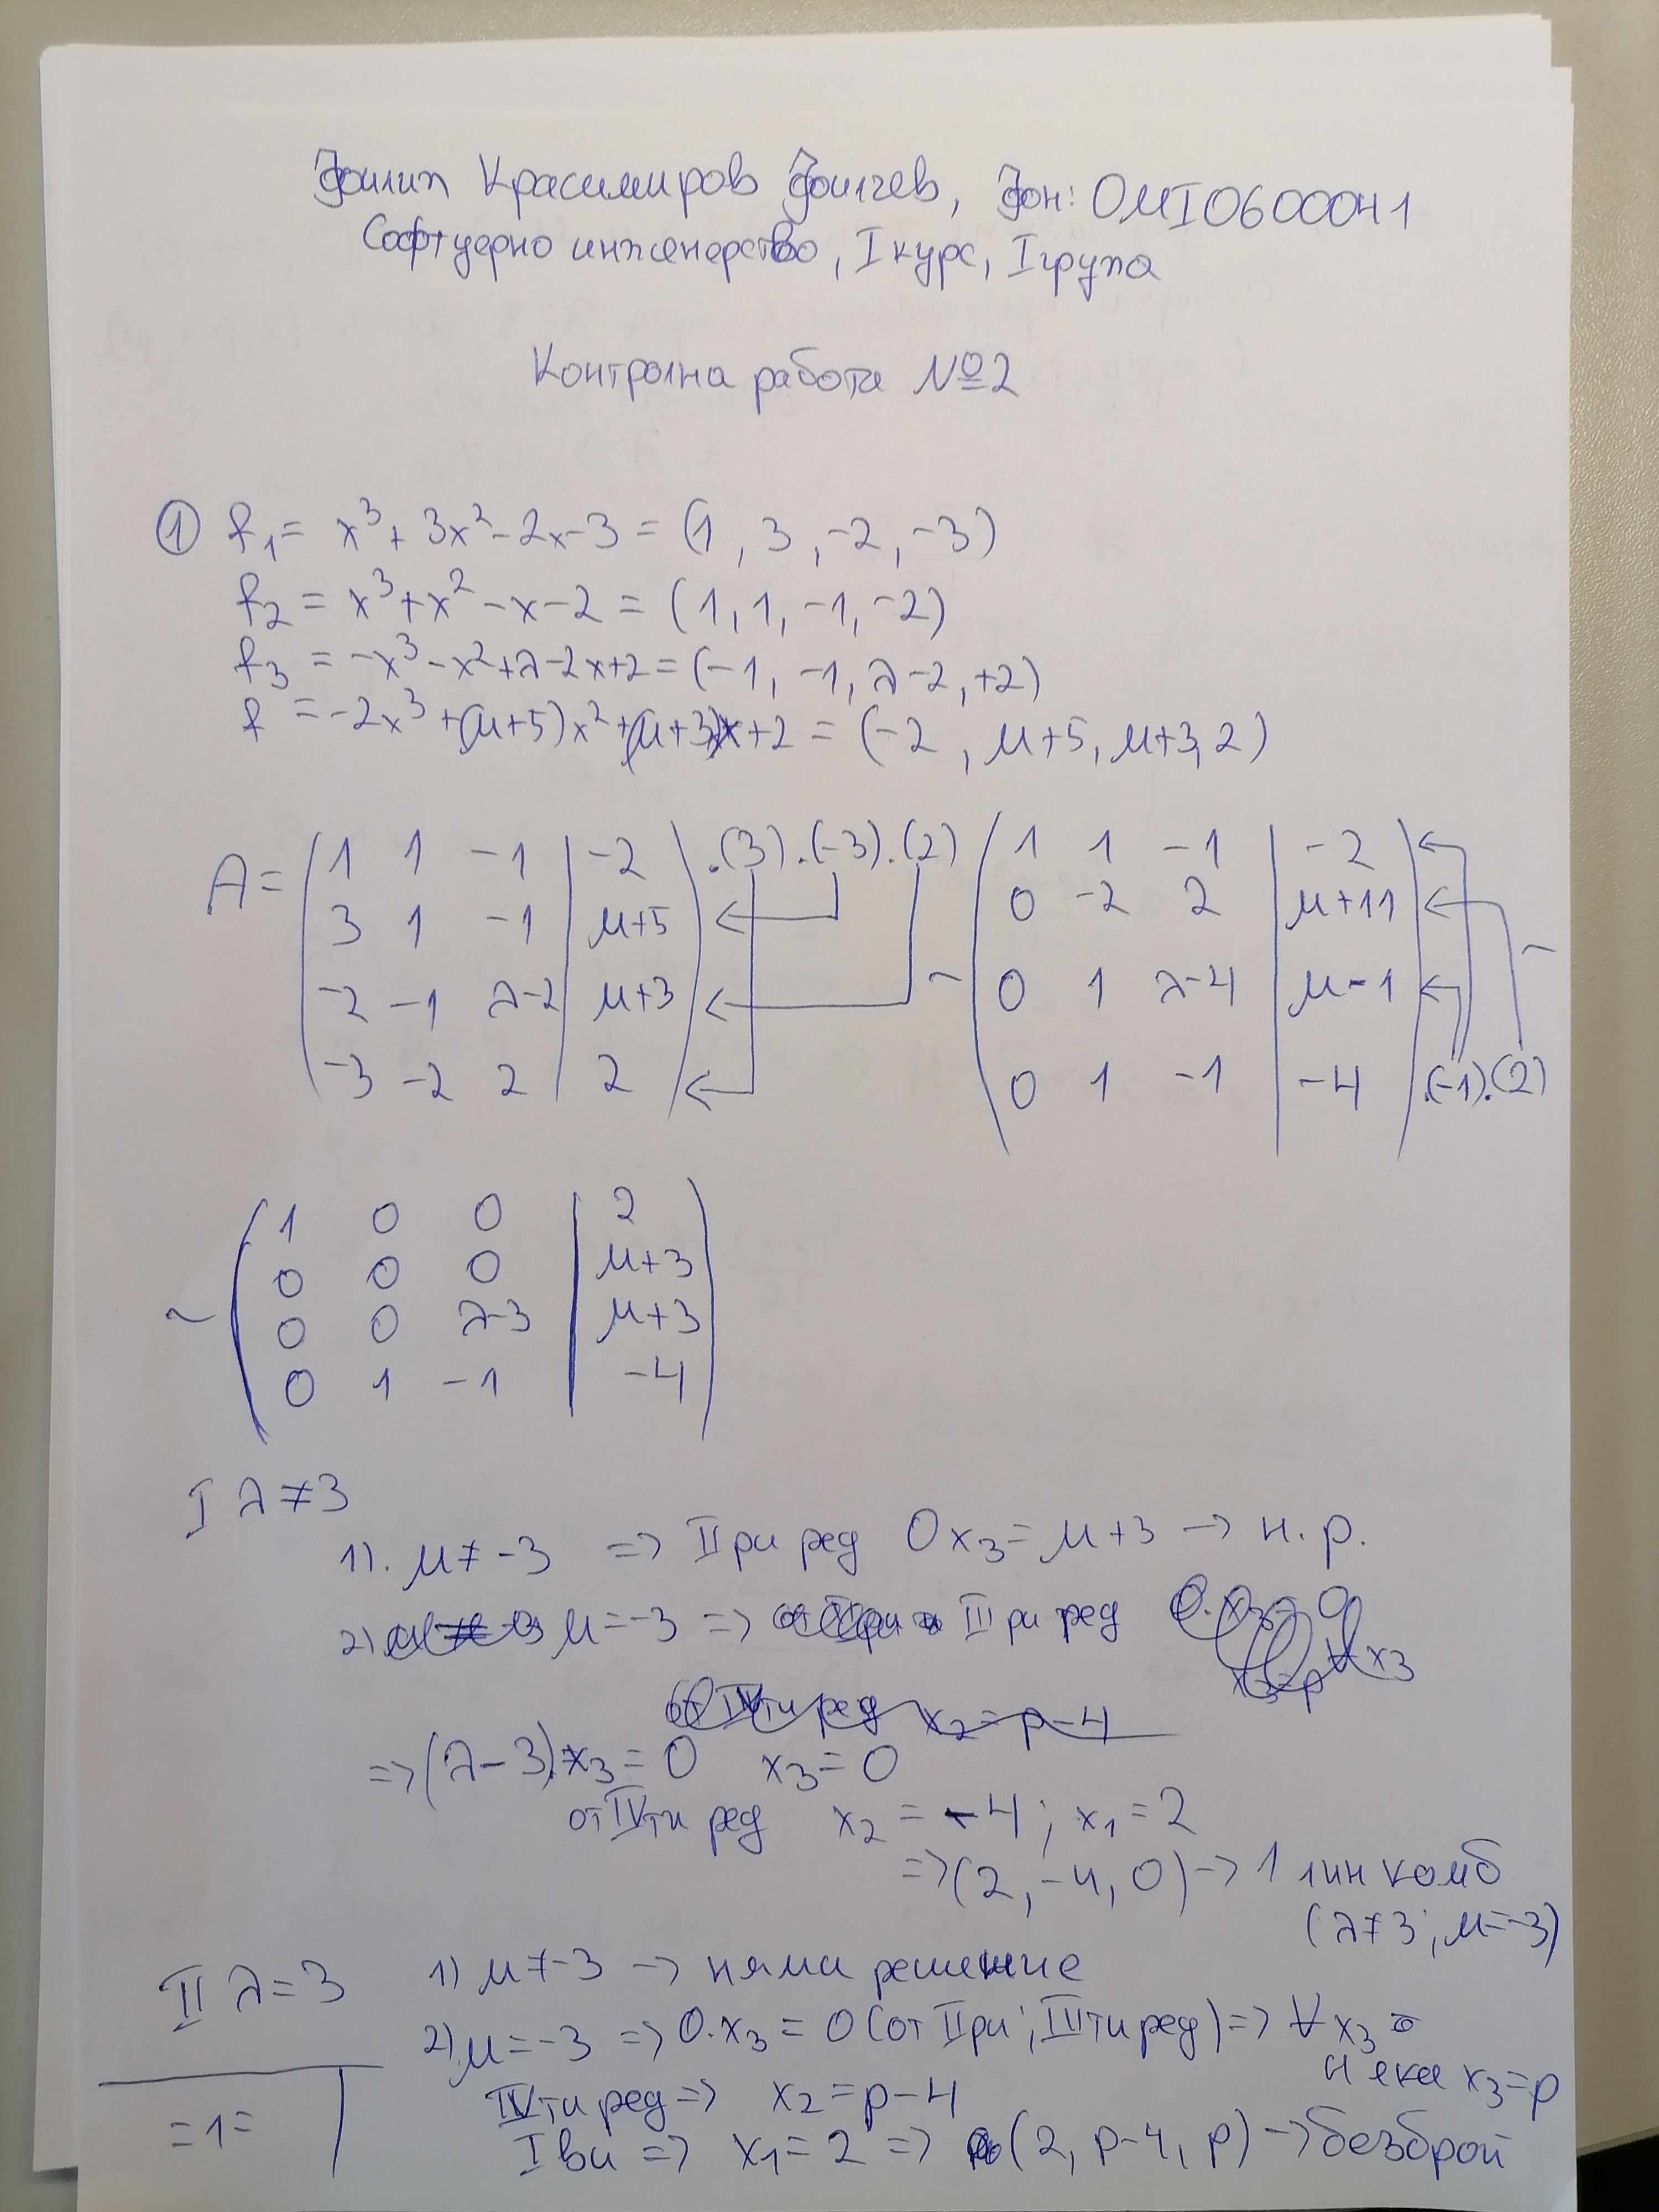 Филип Красимиров Филчев, Фон: 0MI0600041
Софтуерно инженерство, I курс, I група
Контролна работа №2
① f₁ = x³ + 3x² - 2x - 3 = (1, 3, -2, -3)
f₂ = x³ + x² - x - 2 = (1, 1, -1, -2)
f₃ = -x³ - x² + λ - 2x + 2 = (-1, -1, λ-2, +2)
f = -2x³ + (μ+5)x² + (μ+3)x + 2 = (-2, μ+5, μ+3, 2)
A = ( 1 1 -1 | -2 ) .(3).(-3).(2) ( 1 1 -1 | -2 )
3 1 -1 | μ+5 0 -2 2 | μ+11
-2 -1 λ-2 | μ+3 ~ 0 1 λ-4 | μ-1 ~
-3 -2 2 | 2 0 1 -1 | -4 .(-1).(2)
1 0 0 | 2
0 0 0 | μ+3
~ 0 0 λ-3 | μ+3
0 1 -1 | -4
I λ≠3
1). μ≠-3 => IIри ред 0x₃ = μ+3 -> н.р.
2) μ=-3 => IIIри ред
от IVти ред x₂ = p-4
=> (λ-3).x₃ = 0 x₃ = 0
от IVти ред x₂ = -4; x₁ = 2
=> (2, -4, 0) -> 1 лин комб
(λ≠3; μ=-3)
II λ=3 1) μ≠-3 -> няма решение
2) μ=-3 => 0.x₃ = 0 (от IIри; IIIти ред) => ∀x₃
Нека x₃=p
IVти ред => x₂ = p-4
Iви => x₁ = 2 => (2, p-4, p) -> безброй
=1=